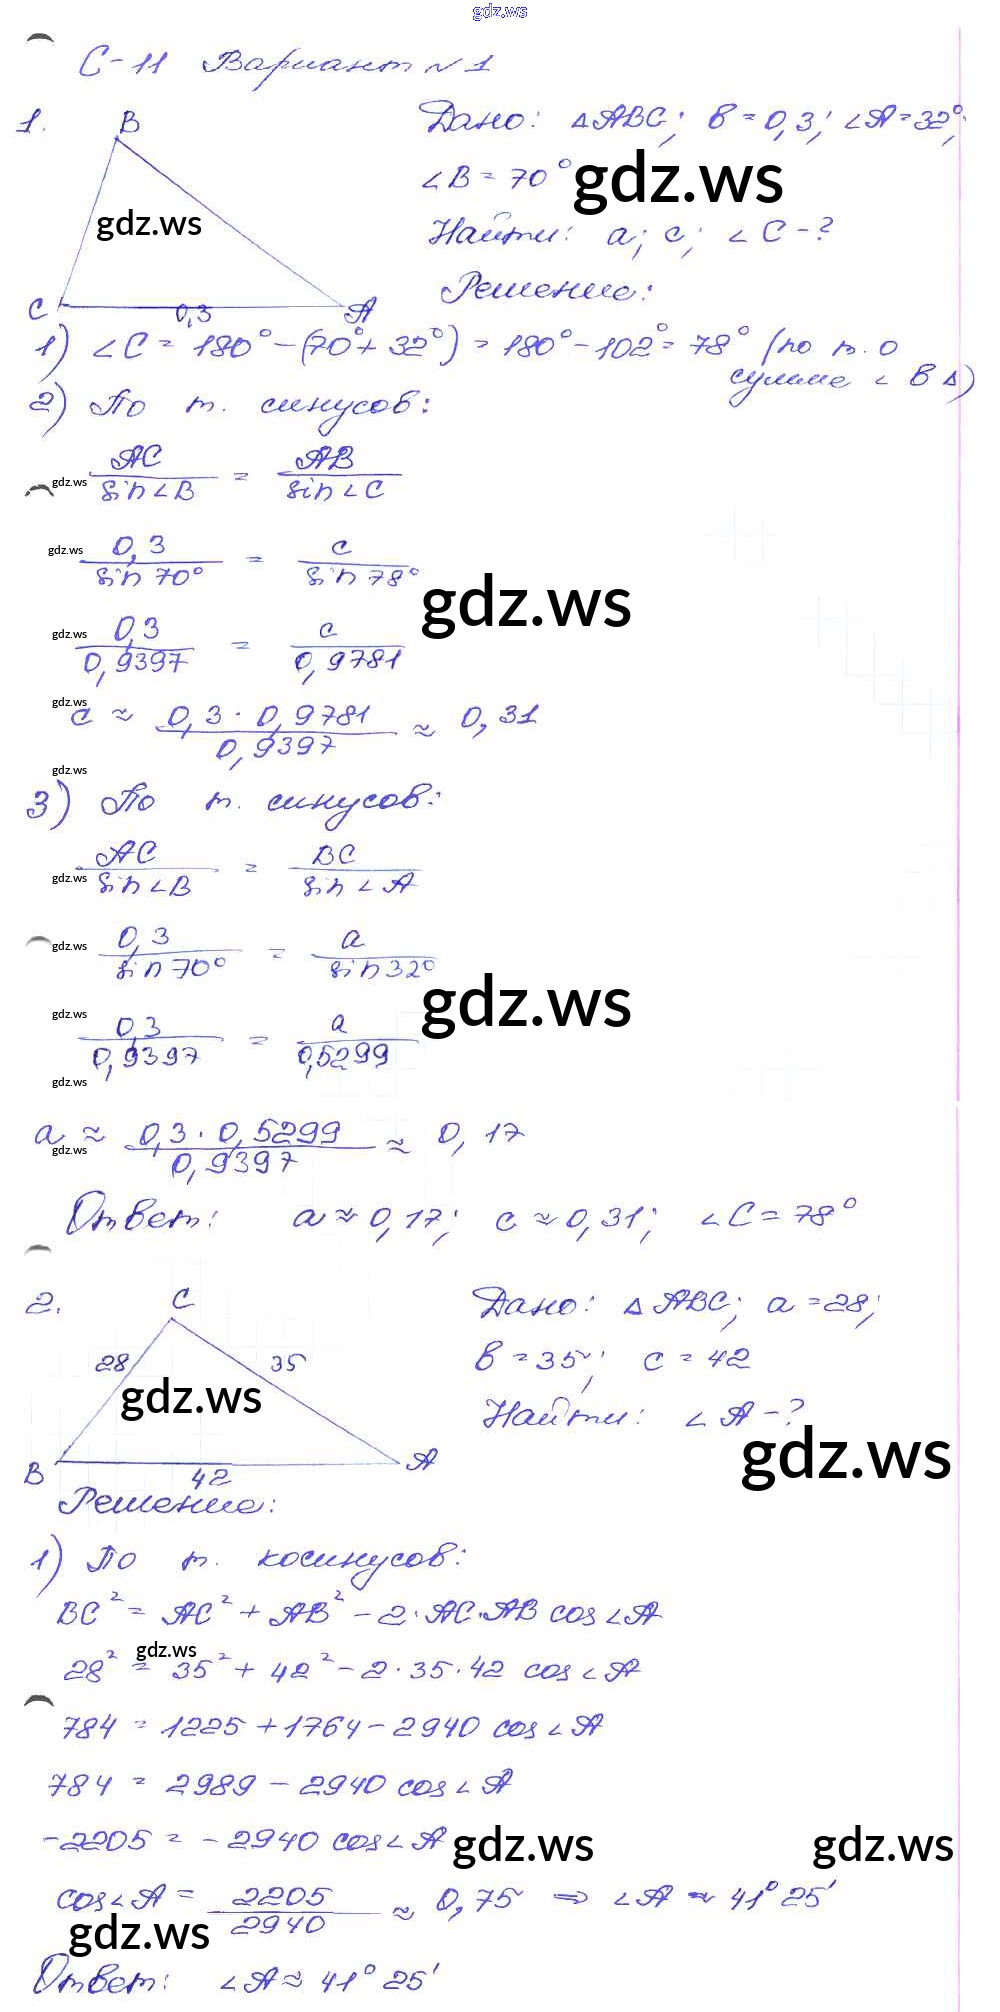 gdz.ws
С-11 Вариант №1
1.
B
gdz.ws
C
0,3
A
Дано: △ABC; b = 0,3; ∠A = 32°;
∠B = 70°
gdz.ws
Найти: a; c; ∠C - ?
Решение:
1) ∠C = 180° - (70° + 32°) = 180° - 102° = 78° (по т. о
сумме ∠ в △)
2) По т. синусов:
AC / sin∠B = AB / sin∠C
gdz.ws
0,3 / sin 70° = c / sin 78°
gdz.ws
gdz.ws
0,3 / 0,9397 = c / 0,9781
gdz.ws
gdz.ws
c ≈ 0,3 · 0,9781 / 0,9397 ≈ 0,31
gdz.ws
3) По т. синусов:
AC / sin∠B = BC / sin∠A
gdz.ws
0,3 / sin 70° = a / sin 32°
gdz.ws
gdz.ws
0,3 / 0,9397 = a / 0,5299
gdz.ws
gdz.ws
a ≈ 0,3 · 0,5299 / 0,9397 ≈ 0,17
gdz.ws
Ответ: a ≈ 0,17; c ≈ 0,31; ∠C = 78°
2.
C
28
35
gdz.ws
B
42
A
Дано: △ABC; a = 28;
b = 35; c = 42
Найти: ∠A - ?
gdz.ws
Решение:
1) По т. косинусов:
BC² = AC² + AB² - 2 · AC · AB cos∠A
gdz.ws
28² = 35² + 42² - 2 · 35 · 42 cos∠A
784 = 1225 + 1764 - 2940 cos∠A
784 = 2989 - 2940 cos∠A
-2205 = -2940 cos∠A
gdz.ws
gdz.ws
cos∠A = 2205 / 2940 ≈ 0,75 ⇒ ∠A ≈ 41° 25'
gdz.ws
Ответ: ∠A ≈ 41° 25'